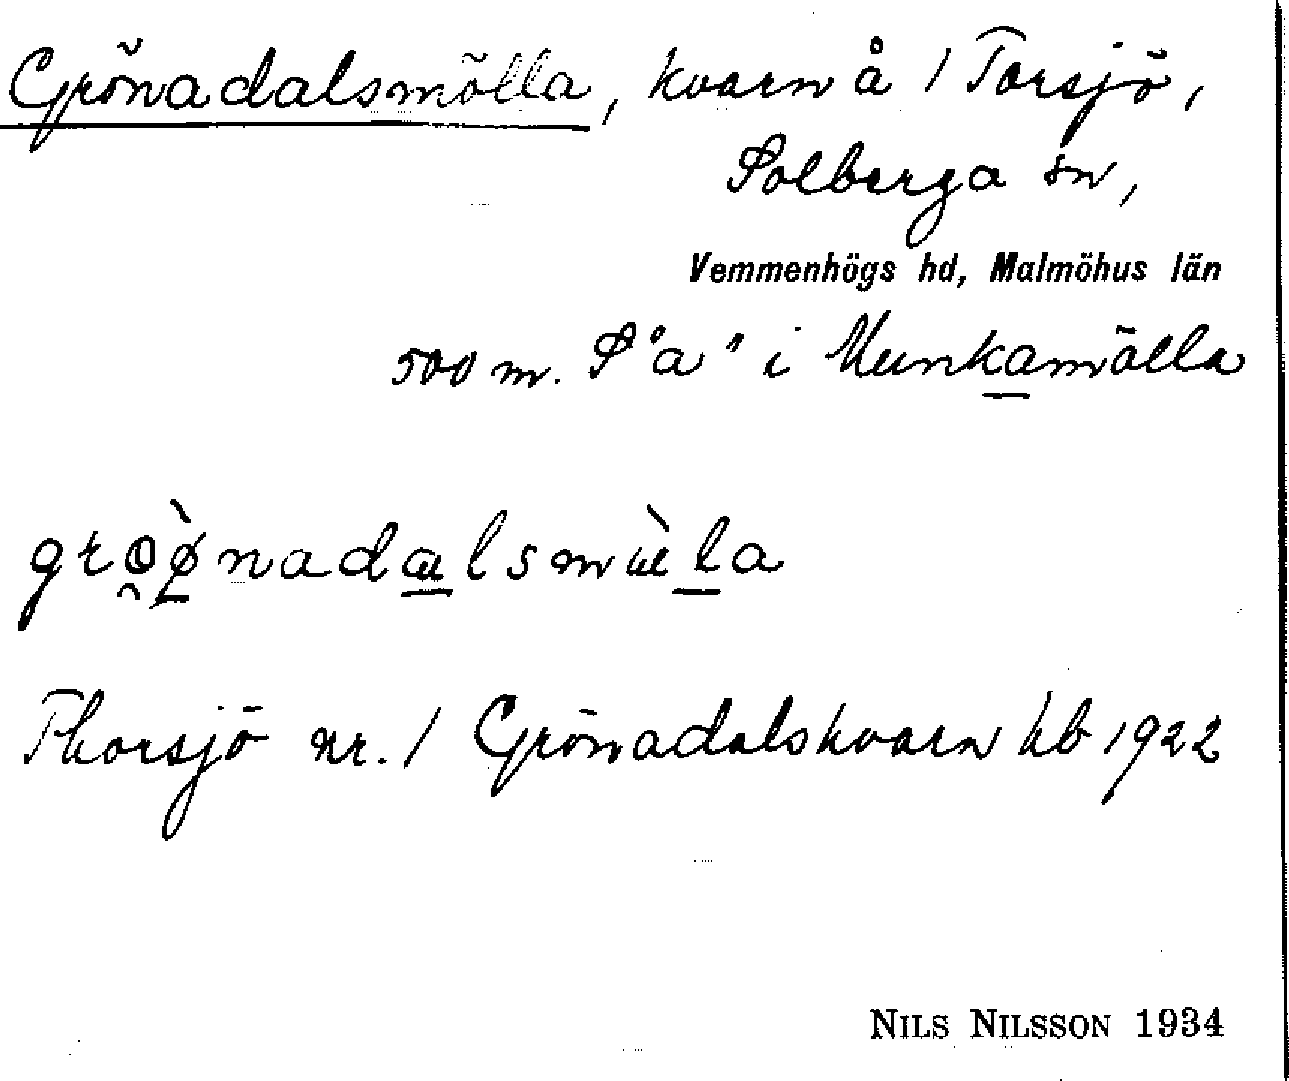 Grönadalsmölla, kvarn å 1 Torsjö,
Solberga sn,
Vemmenhögs hd, Malmöhus län
500 m. S "a" i Munkamölla
Thorsjö nr. 1 Grönadalskvarn kb 1922
NILS NILSSON 1934